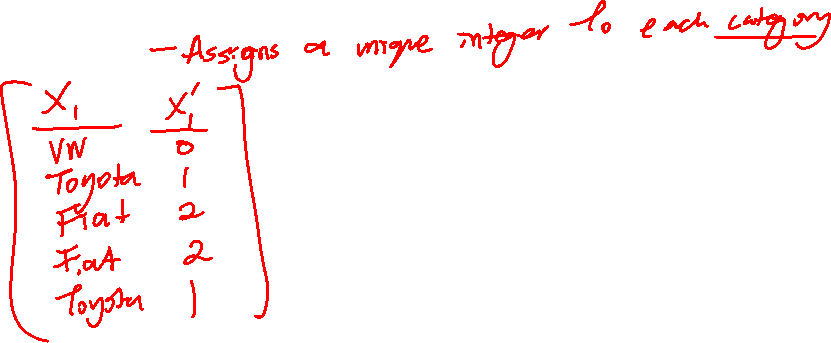 - Assigns a unique integer to each category
X₁ X₁'
VW 0
Toyota 1
Fiat 2
Fiat 2
Toyota 1